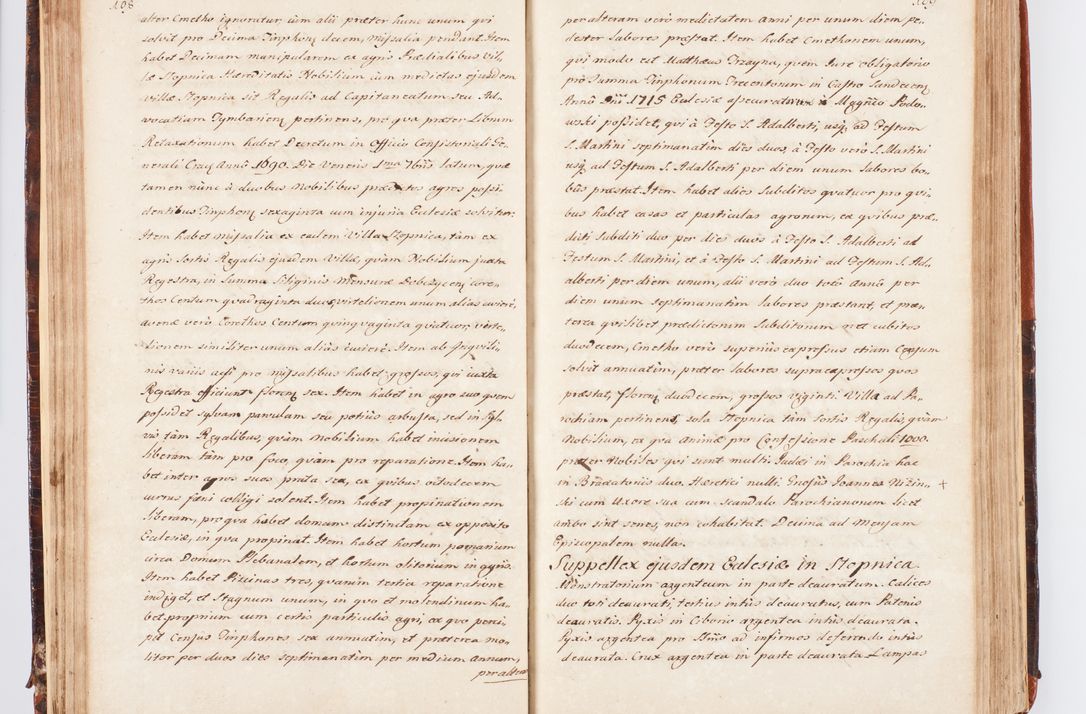 108
alter Cmetho ignoratur, cum alii præter hunc unum qui
solvit pro Decima Tinphonę decem, missalia pendant. Item
habet Decimam manipularem ex agris Prædialibus Vil-
læ Stopnica Hæreditatis Nobilium cum medietas ejusdem
villæ Stopnica sit Regalis ad Capitaneatum seu Ad-
vocatiam Tymbarcenę pertinens, pro qua præter Librum
Retaxationum habet Decretum in Officio Consistoriali Ge-
nerali Crac Annô 1690. Die Veneris 1ma 7bris latum, quæ
tamen nunc à duobus Nobilibus prædictos agros possi-
dentibus Tinphonę sexaginta cum injuria Ecclesiæ solvitur.
Item habet missalia ex eadem Villa Stopnica, tàm ex
agris Sortis Regalis ejusdem Villæ, quàm Nobilium juxta
Regestra, in Summa Siliginis Mensuræ Dobczycenę Core-
thos Centum quadraginta duos, virtelionem unum alias cwierć,
avenæ verò Corethos Centum quinquaginta quatuor, virte-
lionem similiter unum alias cwierć. Item ab Inquili-
nis variis asti pro missalibus habet grossos, qui juxta
Regestra efficiunt florenę sex. Item habet in agro suo quem
possidet sylvam parvulam seu potius arbusta, sed in Syl-
vis tàm Regalibus, quàm Nobilium habet incisionem
liberam tàm pro foco, quàm pro reparatione. Item ha-
bet inter agros suos prata sex, ex quibus octodecem
currus fæni colligi solent. Item habet propinationem
liberam, pro qua habet domum distinctam ex opposito
Ecclesiæ, in qua propinat. Item habet hortum pomarium
circa Domum Plebanalem, et hortum olitorium in agris.
Item habet Piscinas tres, quarum tertia reparatione
indiget, et Stagnum unum, in quo et molendinum ha-
bet proprium cum certis particulis agri, ex quo perci-
pit Census Tinphones sex annuatim, et præterea mo-
litor per duos dies septimanatim per medium annum,
per alteram
109
per alteram verò medietatem anni per unum diem pe-
dester labores præstat. Item habet Cmethonem unum,
qui modo est Matthæus Trzayna, quem Jure obligatorio
pro Summa Tinphonum Trecentorum in Castro Sandecenę
Annô Dñi 1715 Ecclesiæ assecuratorum à Magnco Podo-
wski possidet, qui à Festo S. Adalberti, usq; ad Festum
S. Martini septimanatim dies duos, à Festo verò S. Martini
usq; ad Festum S. Adalberti per diem unum labores bo-
bus præstat. Item habet alios Subditos quatuor pro qui-
bus habet casas et particulas agrorum, ex quibus præ-
dicti Subditi duo per dies duos à Festo S. Adalberti ad
Festum S. Martini, et à Festo S. Martini ad Festum S. Ad-
alberti per diem unum, alii verò duo toto Annô per
diem unum septimanatim labores præstant, et præ-
terea quilibet prædictorum Subditorum net cubitos
duodecem, Cmetho verò superius expressus etiam Censum
solvit annuatim, præter labores supraexpressos quos
præstat, florenę duodecem, grossos viginti. Villa ad Pa-
rochiam pertinens, sola Stopnica tàm Sortis Regalis, quàm
Nobilium, ex qua animæ pro Confessione Paschali 1000.
præter Nobiles qui sunt multi. Judæi in Parochia hac
in Brdeatoriis duo. Hæretici nulli. Gnosus Joannes Nizin- +
ski cum Uxore sua cum scandalo Parochianorum licet
ambo sint senes, non cohabitat. Decima ad Mensam
Episcopalem nulla.
Suppellex ejusdem Ecclesiæ in Stopnica.
Monstratorium argenteum in parte deauratum. Calices
duo toti deaurati, tertius intus deauratus, cum Patenis
deauratis. Pyxis in Ciborio argentea intus deaurata.
Pyxis argentea pro Sſmo ad infirmos deferendo intus
deaurata. Crux argentea in parte deaurata. Lampas